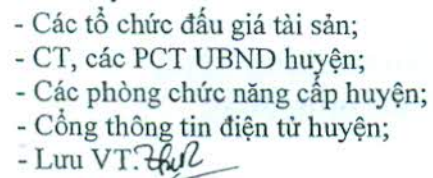 - Các tổ chức đấu giá tài sản;
- CT, các PCT UBND huyện;
- Các phòng chức năng cấp huyện;
- Cổng thông tin điện tử huyện;
- Lưu VT.